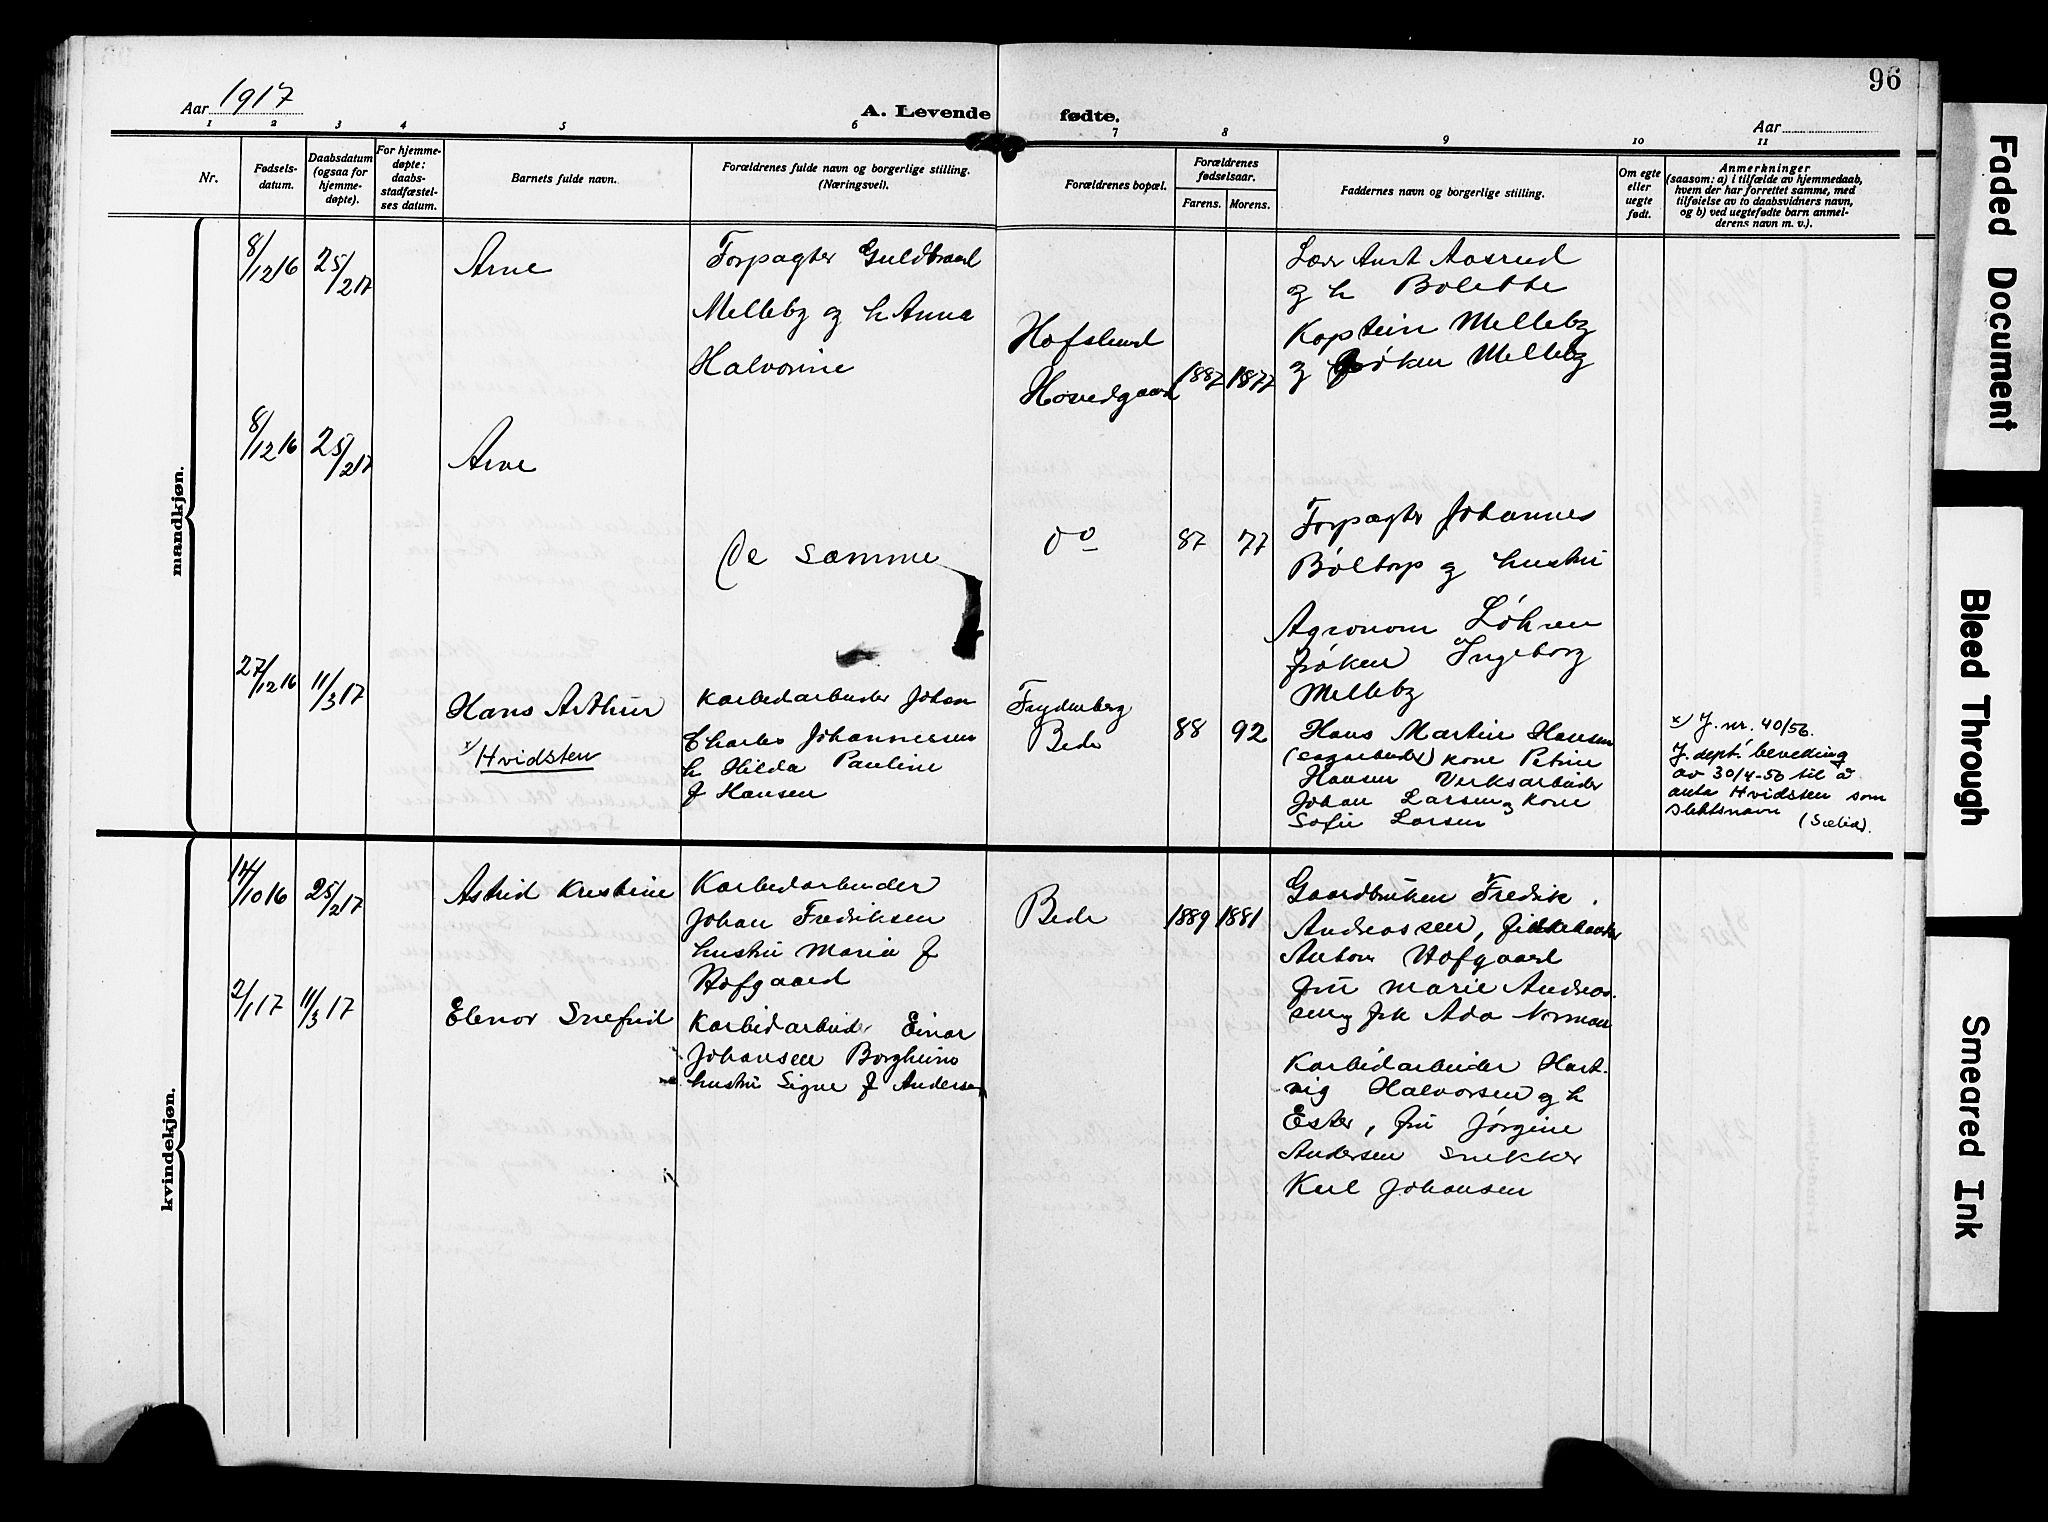 96
Aar 1917
A. Levende fødte.
Aar
1 2 3 4 5 6 7 8 9 10 11
Nr.
Fødsels-
datum.
Daabsdatum
(ogsaa for
hjemme-
døpte).
For hjemme-
døpte:
daabs-
stadfæstel-
ses datum.
Barnets fulde navn.
Forældrenes fulde navn og borgerlige stilling.
(Næringsvei).
Forældrenes bopæl.
Forældrenes
fødselsaar.
Farens. Morens.
Faddernes navn og borgerlige stilling.
Om egte
eller
uegte
født.
Anmerkninger
(saasom: a) i tilfælde av hjemmedaab,
hvem der har forrettet samme, med
tilføielse av to daabsvidners navn,
og b) ved uegtefødte barn anmel-
derens navn m. v.).
mandkjøn.
8/12 16 25/2 17
Arne
Forpagter Guldbrand
Melleby og h Anna
Halvorine
Hafslund
Hovedgaard
1887 1877
Aasrud
og h Bolette
Kaptein Melleby
og frøken Melleby
8/12 16 25/2 17
Arve
De samme
do
87 77
Forpagter Johannes
Böltorp og hustru
Agronom Løhren
frøken Ingeborg
Melleby
27/12 16 11/3 17
Hans Arthur
x) Hvidsten
Karbedarbeider Johan
Charles Johannessen
h Hilda Pauline
f Hansen
Frydenberg
Bede
88 92
Hans Martin Hansen
(sagarbeider) kone Petrine
Hansen Verksarbeider
Johan Larsen og kone
Sofie Larsen
x) J. nr. 40/56.
J. dept. bevilling
av 30/4-56 til å
anta Hvidsten som
slektsnavn
kvindekjøn.
14/10 16 25/2 17
Astrid Kristine
Karbedarbeider
Johan Fredriksen
hustru Maria f
Hofgaard
Bede
1889 1881
Fredrik
Andreassen,
Anton Hofgaard
fru Marie Andreas-
sen og frk Ada Norman
2/1 17 11/3 17
Elenor Snefrid
Karbidarbeider Einar
Johansen Borgheim
hustru Signe f Andersen
Karbidarbeider Hart-
vig Halvorsen og h
Ester, fru Jørgine
Andersen Snekker
Karl Johansen
Faded Document
Bleed Through
Smeared Ink